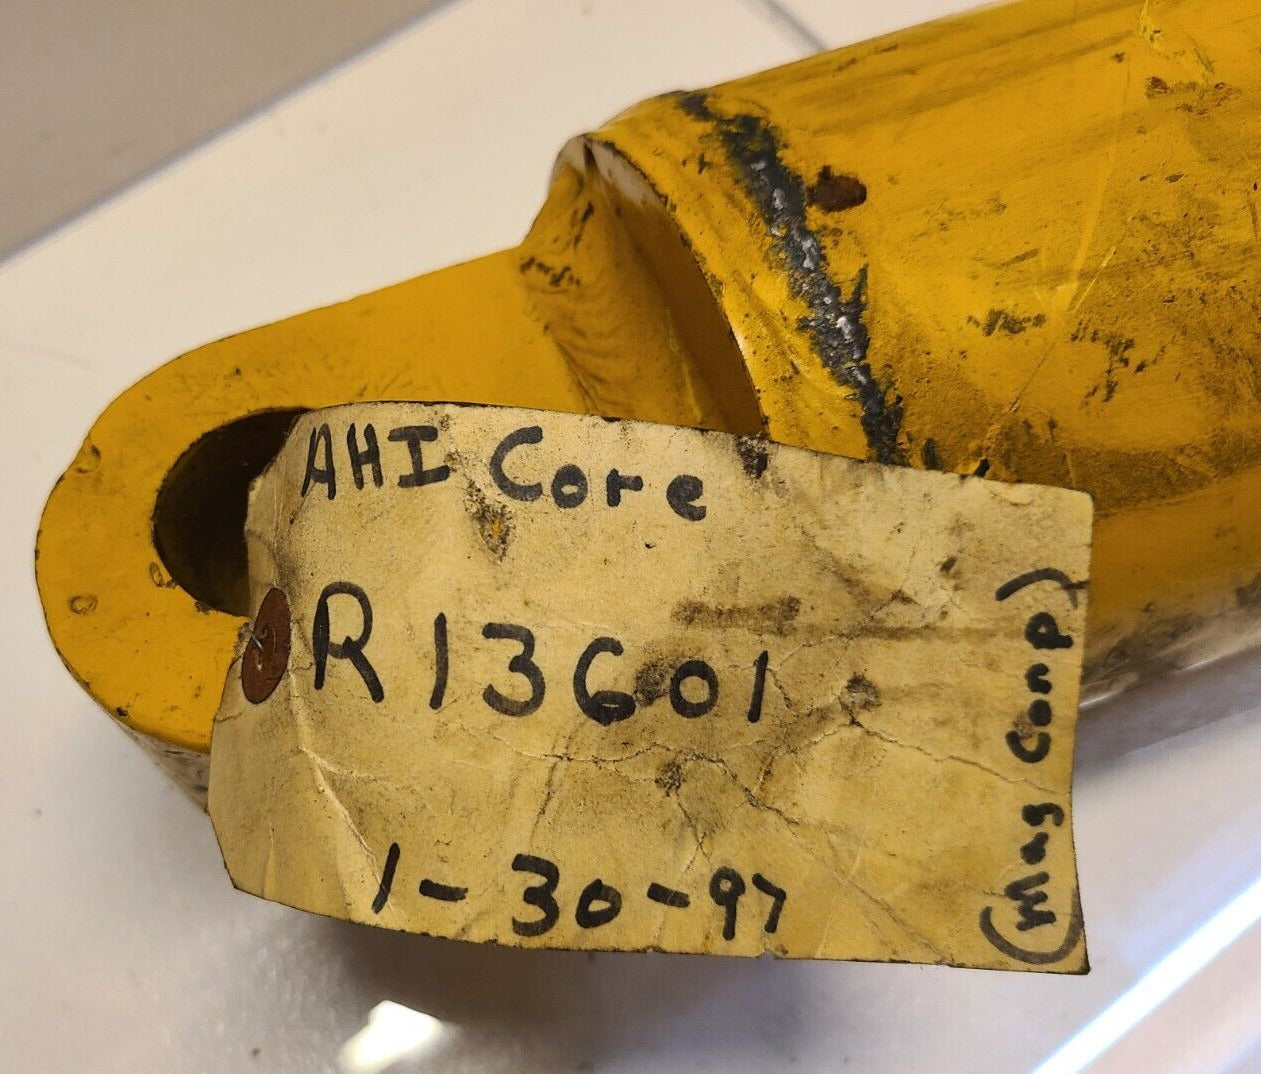 AHI Core
R13601
1-30-97
(Mag Conp)